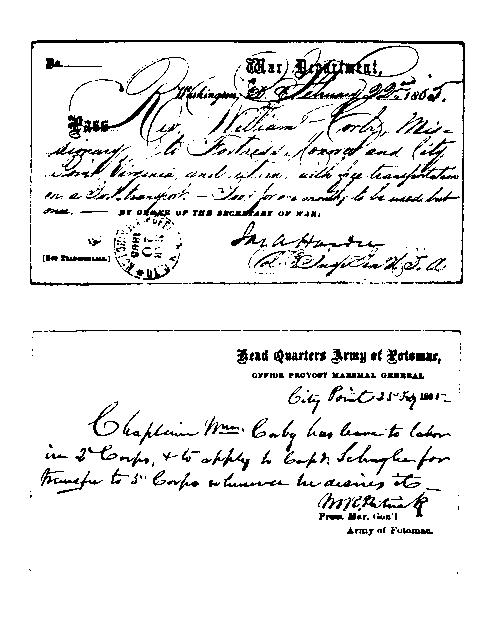 No.
War Department,
Washington, D.C. February 22nd 1865.
Pass Rev. William Corby, Mis-
sionary, to Fortress Monroe and City
Point Virginia and return, with free transportation
on a Gov't transport. — Good for one month, to be used but
once. — BY ORDER OF THE SECRETARY OF WAR:
Jas A Hardie
Col. & Insp Gen U.S.A
[Not Transferable.]
Head Quarters Army of Potomac,
OFFICE PROVOST MARSHAL GENERAL
City Point 25 Feby 1865
Chaplain Wm. Corby has leave to labor
in 2d Corps, & to apply to Capt. for
transfer to 5th Corps whenever he desires it —
M R Patrick
Prov. Mar. Gen'l
Army of Potomac.